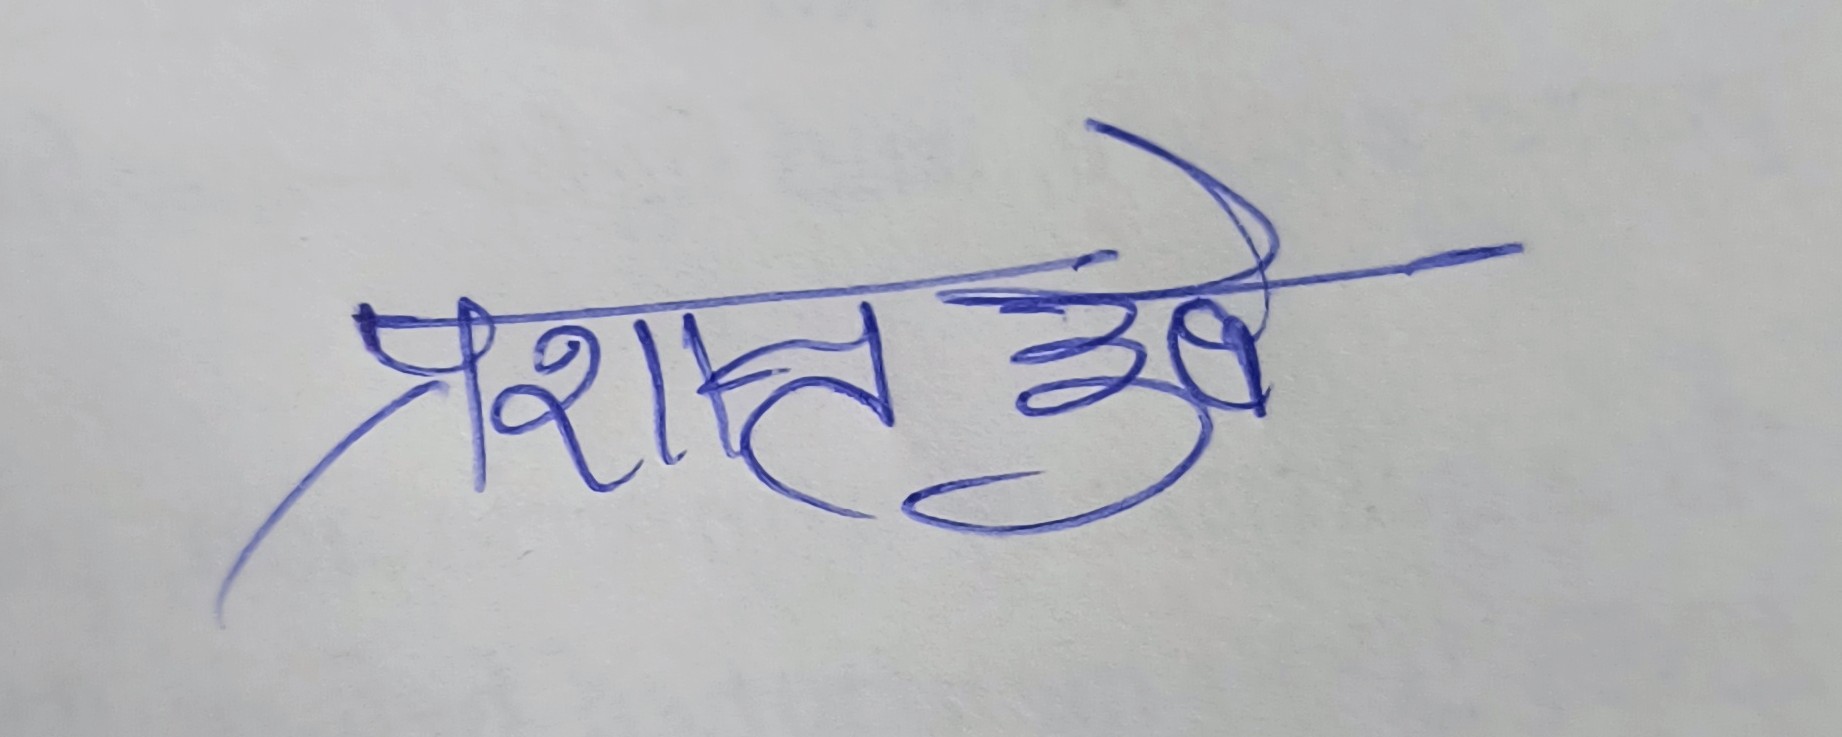 प्रशान्त दुबे